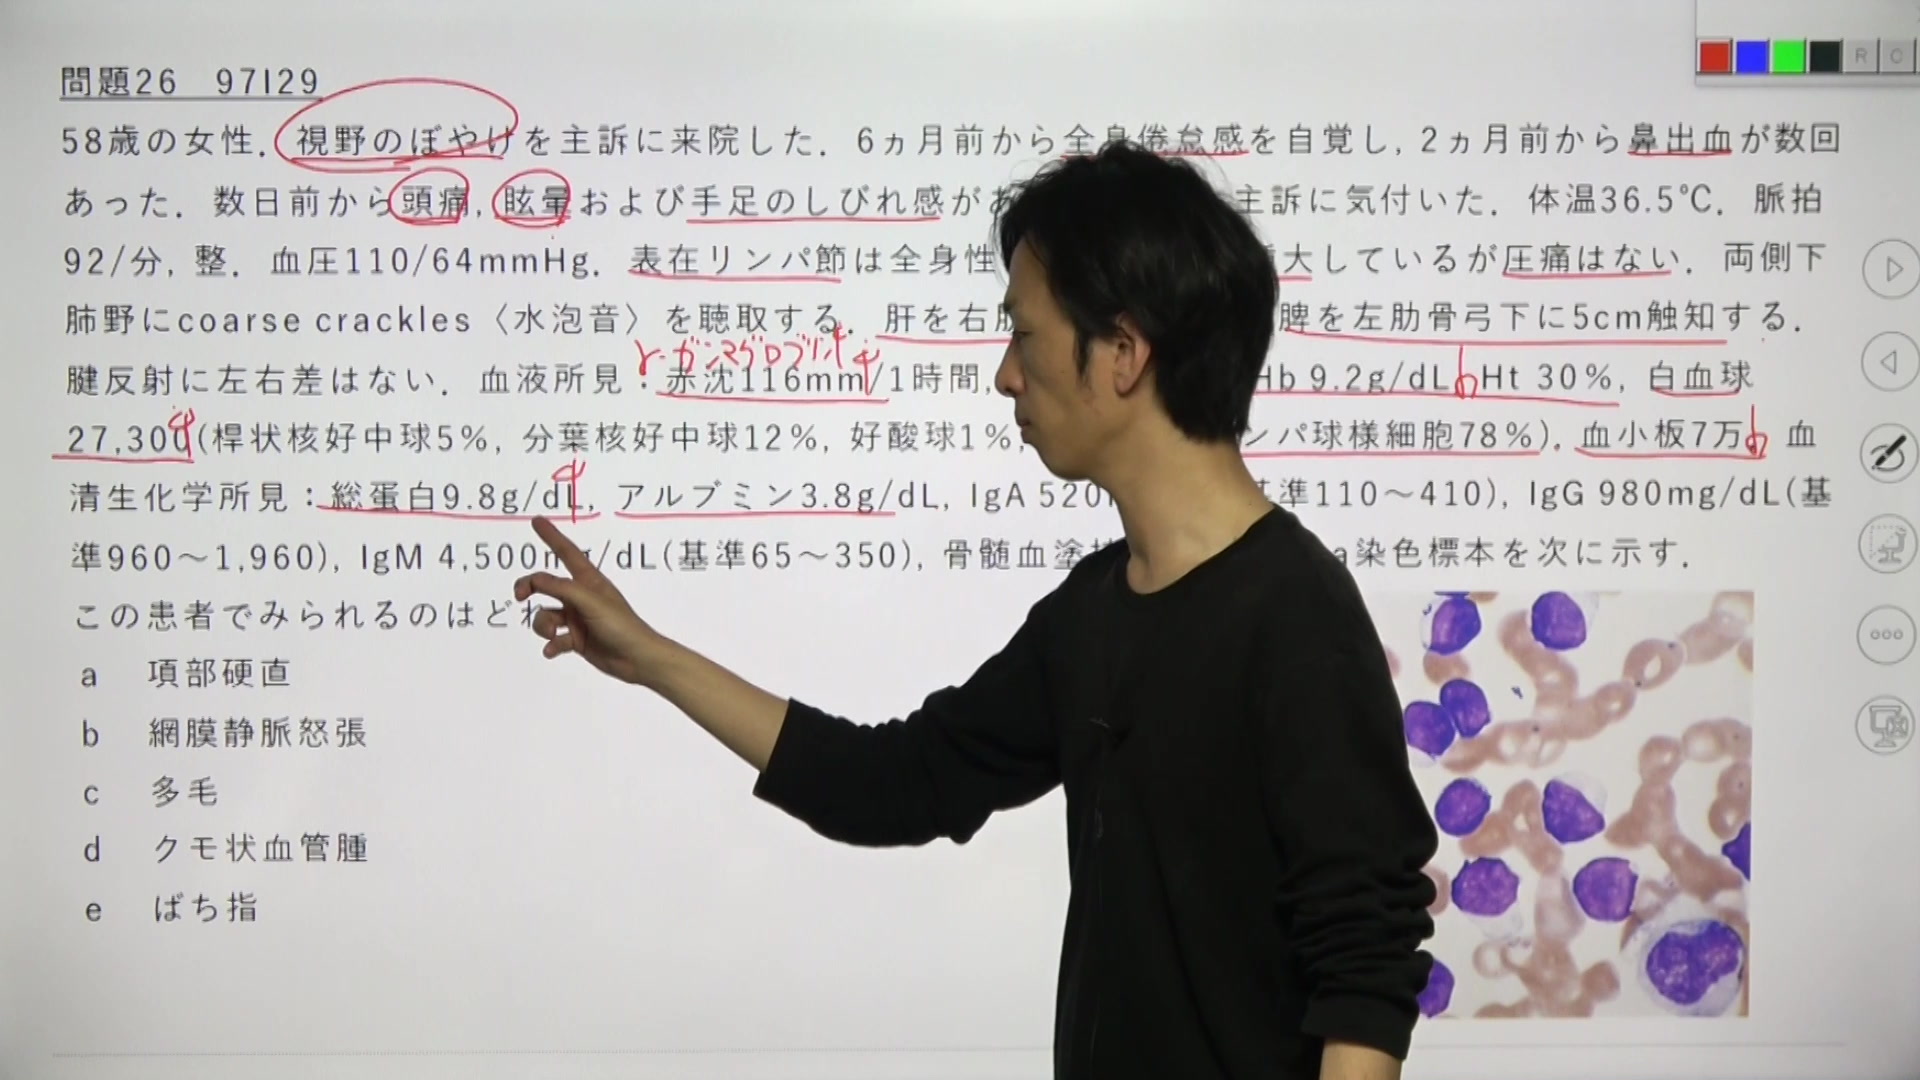 問題26 97I29
58歳の女性．視野のぼやけを主訴に来院した．6ヵ月前から全身倦怠感を自覚し，2ヵ月前から鼻出血が数回
あった．数日前から頭痛，眩暈および手足のしびれ感があ 主訴に気付いた．体温36.5℃．脈拍
92/分，整．血圧110/64mmHg．表在リンパ節は全身性 腫大しているが圧痛はない．両側下
肺野にcoarse crackles〈水泡音〉を聴取する．肝を右肋 脾を左肋骨弓下に5cm触知する．
γ-ガンマグロブリン
腱反射に左右差はない．血液所見：赤沈116mm/1時間， Hb 9.2g/dL Ht 30%，白血球
27,300(桿状核好中球5%，分葉核好中球12%，好酸球1%， ンパ球様細胞78%)．血小板7万 血
清生化学所見：総蛋白9.8g/dL，アルブミン3.8g/dL，IgA 520 基準110～410)，IgG 980mg/dL(基
準960～1,960)，IgM 4,500mg/dL(基準65～350)，骨髄血塗 a染色標本を次に示す．
この患者でみられるのはどれ
a 項部硬直
b 網膜静脈怒張
c 多毛
d クモ状血管腫
e ばち指
R C